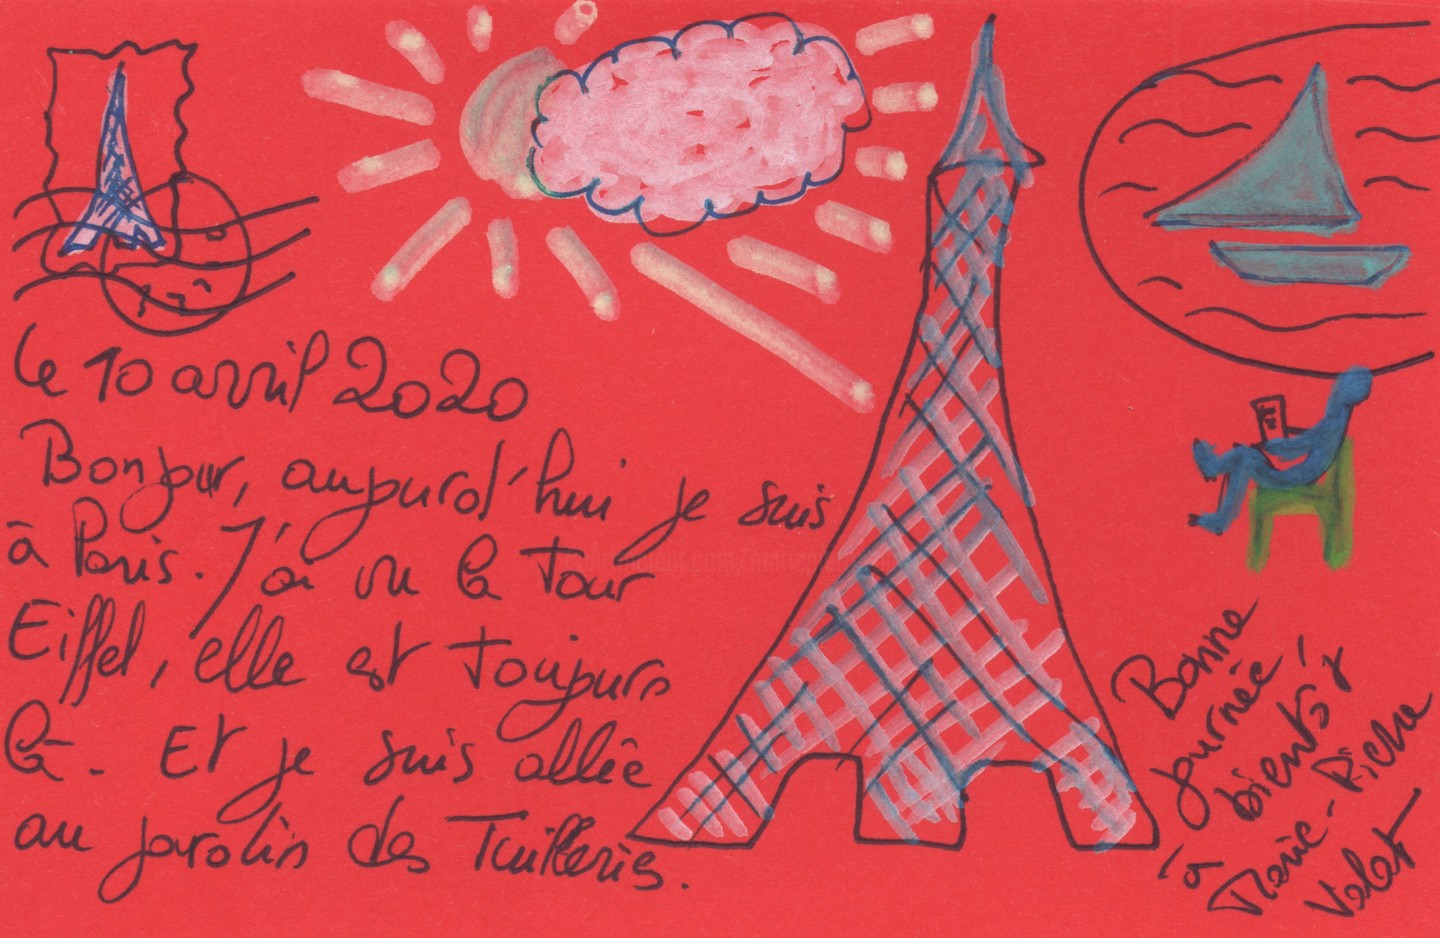 le 10 avril 2020
Bonjour, aujourd'hui je suis
à Paris. J'ai vu la Tour
Eiffel, elle est toujours
là. Et je suis allée
au jardin des Tuilleries.
Bonne
journée
à bientôt
Marie-Pierre
Valat